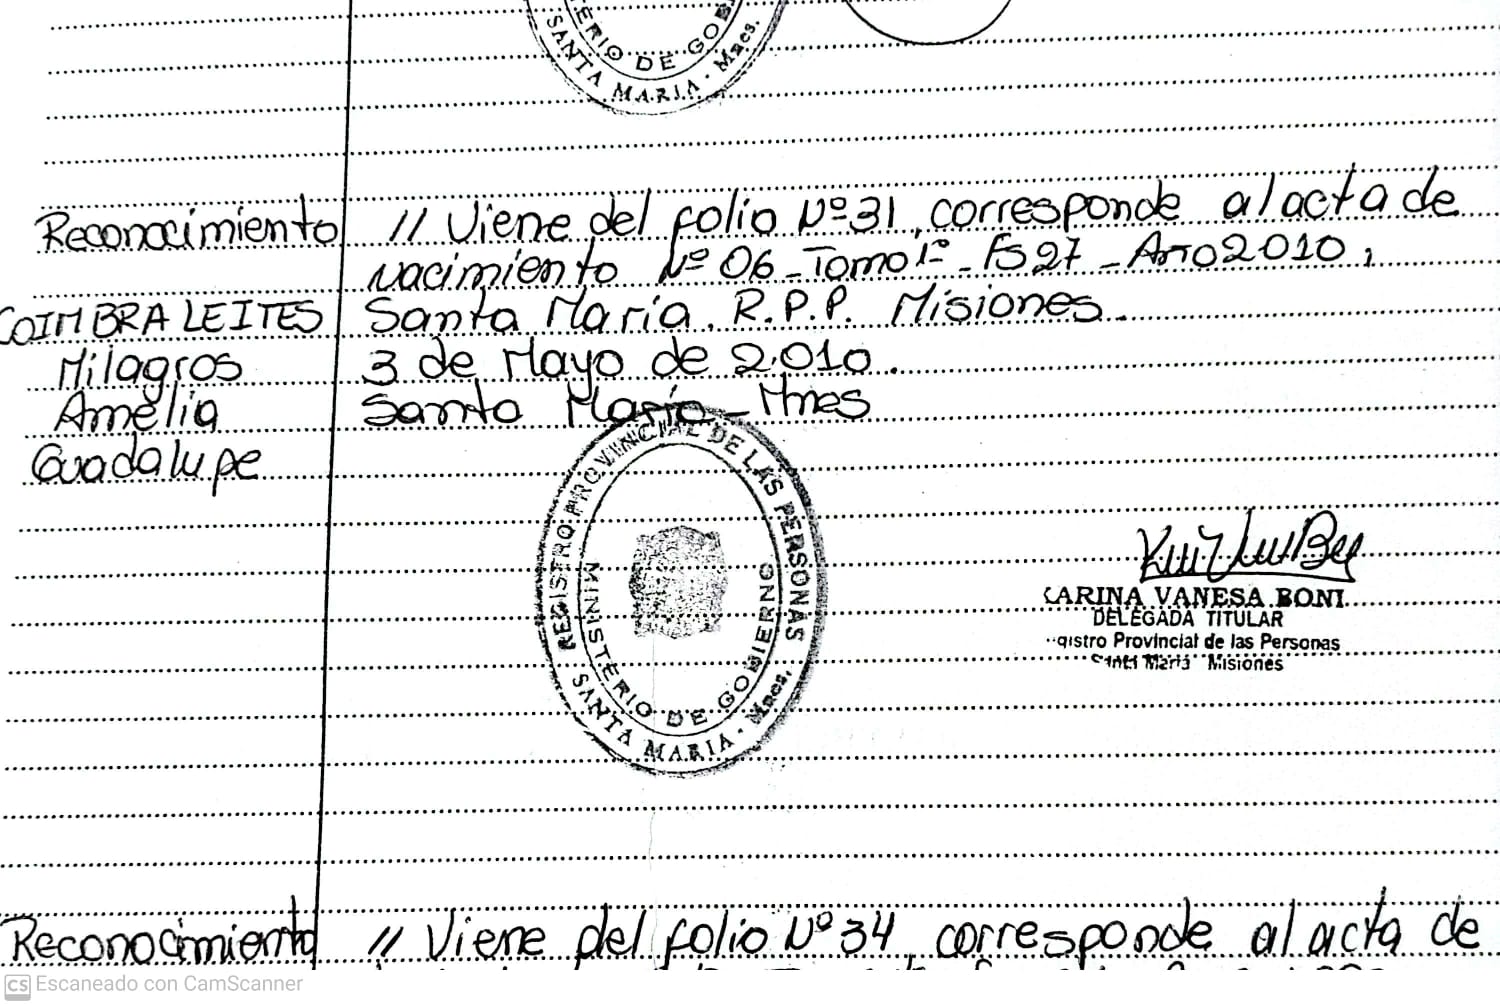 MINISTERIO DE GOB
SANTA MARIA · Mnes.
Reconocimiento // Viene del folio Nº 31, corresponde al acta de
nacimiento Nº 06 - Tomo 1º - Fs 27 - Año 2010,
COIMBRA LEITES Santa María. R.P.P. Misiones.
Milagros 3 de Mayo de 2.010.
Amelia Santa María - Mnes
Guadalupe
REGISTRO PROVINCIAL DE LAS PERSONAS
MINISTERIO DE GOBIERNO
SANTA MARIA · Mnes.
KARINA VANESA BONI
DELEGADA TITULAR
gistro Provincial de las Personas
Santa María Misiones
Reconocimiento // Viene del folio Nº 34, corresponde al acta de
CS Escaneado con CamScanner